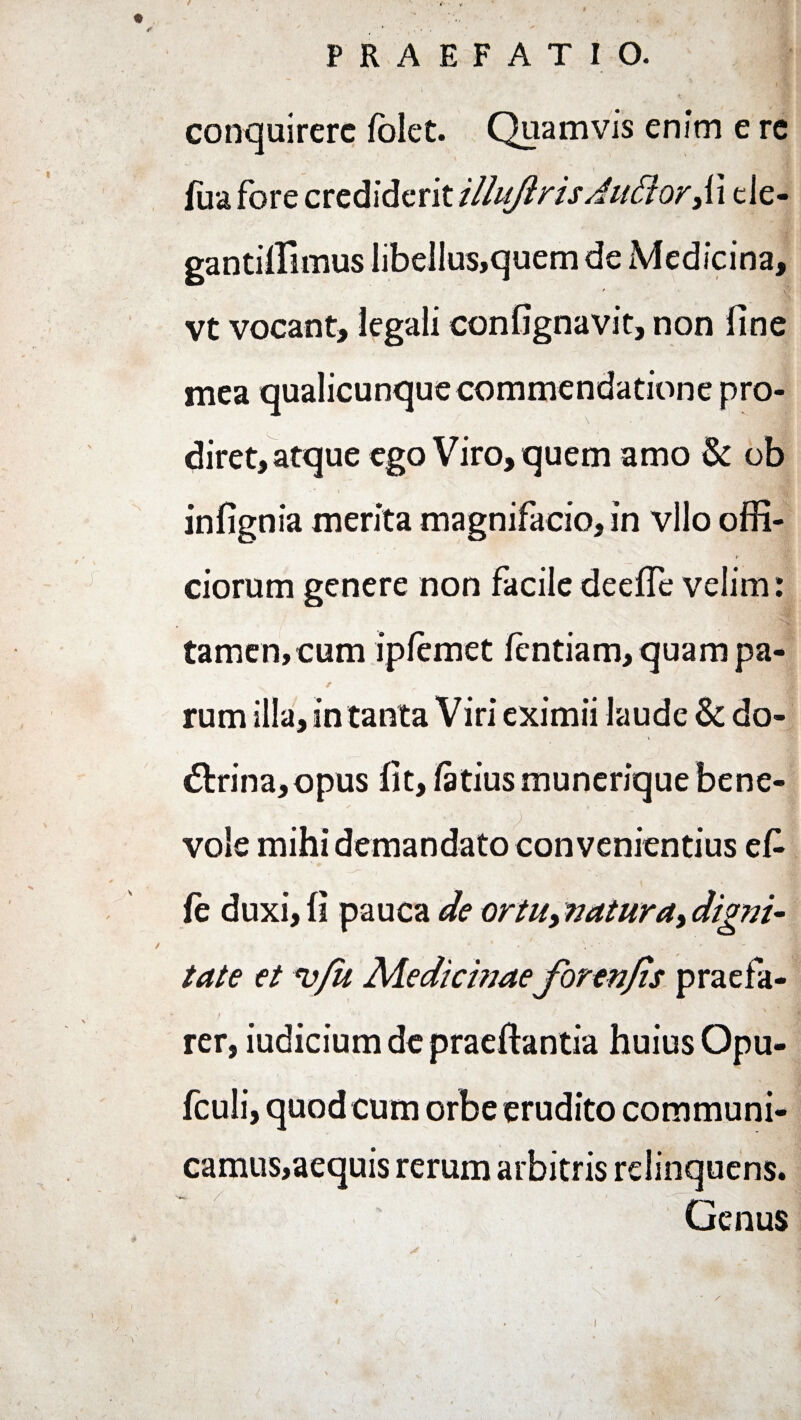 PRAEFATIO.
conquirere ſolet. Quamvis enim e re
ſua fore crediderit illuſtris Auctor, ſi ele-
gantiſſimus libellus, quem de Medicina,
vt vocant, legali conſignavit, non ſine
mea qualicunque commendatione pro-
diret, atque ego Viro, quem amo & ob
inſignia merita magnifacio, in vllo offi-
ciorum genere non facile deeſſe velim:
tamen, cum ipſemet ſentiam, quam pa-
rum illa, in tanta Viri eximii laude & do-
ctrina, opus ſit, ſatius munerique bene-
vole mihi demandato convenientius eſ-
ſe duxi, ſi pauca de ortu, natura, digni-
tate et vſu Medicinae forenſis praefa-
rer, iudicium de praeſtantia huius Opu-
ſculi, quod cum orbe erudito communi-
camus, aequis rerum arbitris relinquens.
Genus